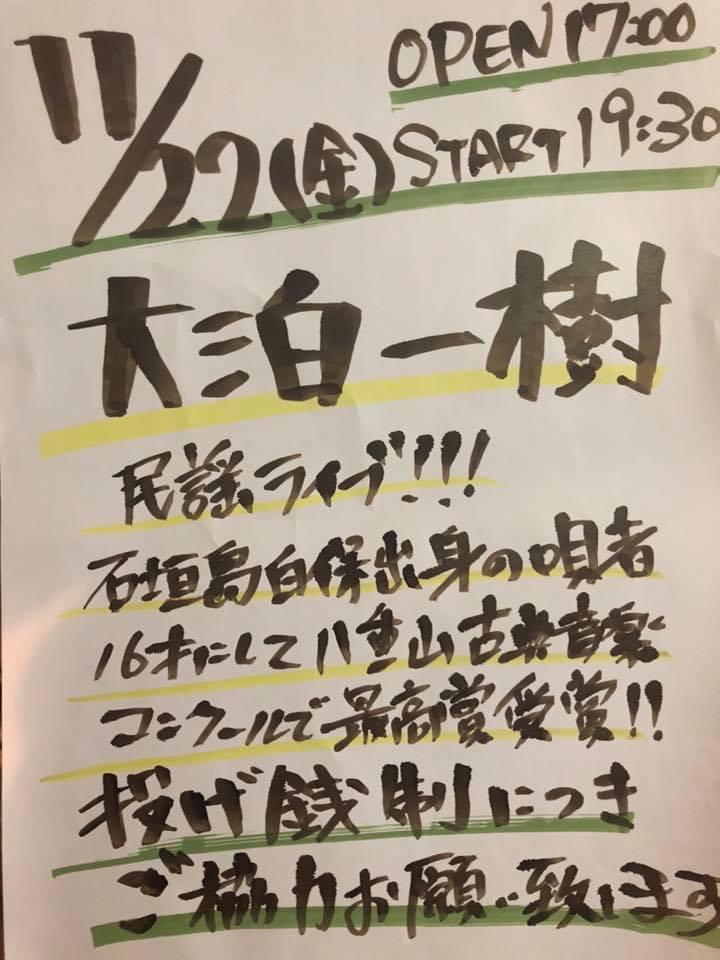 OPEN 17:00
11/22(金) START 19:30
大泊一樹
民謡ライブ!!!
石垣島白保出身の唄者
16才にして八重山古典音楽
コンクールで最高賞受賞!!
投げ銭制につき
ご協力お願い致します